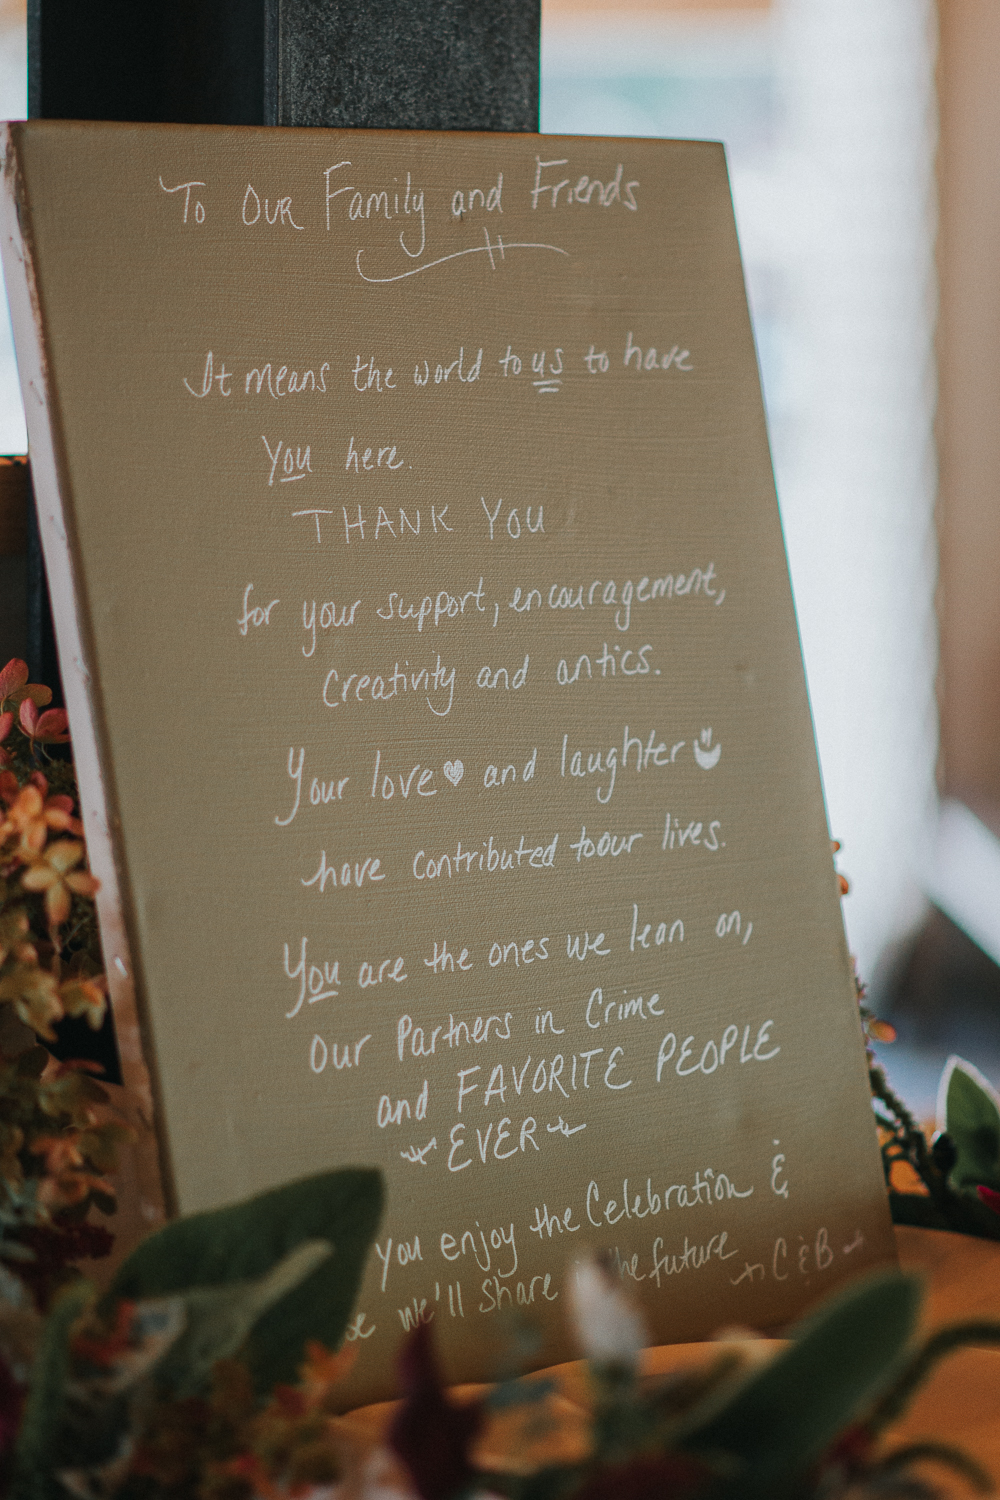 To Our Family and Friends
It means the world to us to have
You here.
THANK YOU
for your support, encouragement,
Creativity and antics.
Your love ♥ and laughter
have contributed to our lives.
You are the ones we lean on,
Our Partners in Crime
and FAVORITE PEOPLE
EVER
you enjoy the Celebration &
we'll share the future
C & B